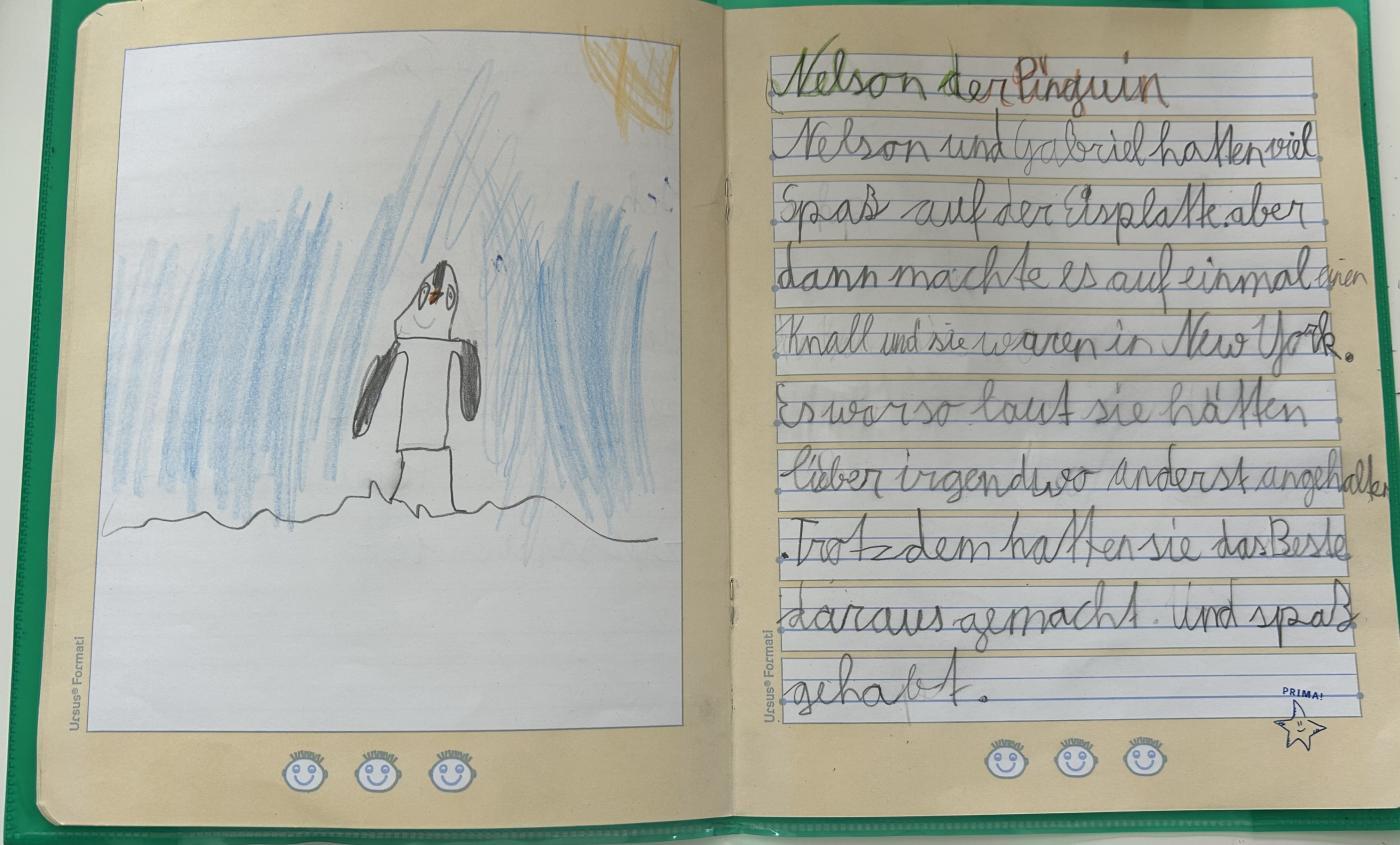 Nelson der Pinguin
Nelson und Gabriel hatten viel
Spaß auf der Eisplatte. aber
dann machte es auf einmal einen
Knall und sie waren in New York.
Es war so laut sie hätten
lieber irgendwo anderst angehalten
. Trotzdem hatten sie das Beste
daraus gemacht. Und spaß
gehabt.
PRIMA!
Ursus® Formati
Ursus® Formati